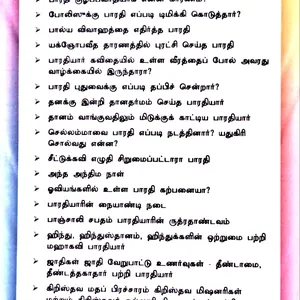 போலிஸுக்கு பாரதி எப்படி டிமிக்கி கொடுத்தார்?
பால்ய விவாஹத்தை எதிர்த்த பாரதி
யக்ஞோபவீத தாரணத்தில் புரட்சி செய்த பாரதி
பாரதியார் கவிதையில் உள்ள வீரத்தைப் போல் அவரது
வாழ்க்கையில் இருந்தாரா?
பாரதி புதுவைக்கு எப்படி தப்பிச் சென்றார்?
தனக்கு இன்றி தானதர்மம் செய்த பாரதியார்
தானம் வாங்குவதிலும் மிடுக்குக் காட்டிய பாரதியார்
செல்லம்மாவை பாரதி எப்படி நடத்தினார்? யதுகிரி
சொல்வது என்ன?
சீட்டுக்கவி எழுதி சிறுமைப்பட்டாரா பாரதி
அந்த அந்திம நாள்
ஓவியங்களில் உள்ள பாரதி கற்பனையா?
பாரதியாரின் நையாண்டி நடை
பாஞ்சாலி சபதம் பாரதியாரின் ருத்ரதாண்டவம்
ஹிந்து, ஹிந்துஸ்தானம், ஹிந்துக்களின் ஒற்றுமை பற்றி
மஹாகவி பாரதியார்
ஜாதிகள் ஜாதி வேறுபாட்டு உணர்வுகள் - தீண்டாமை,
தீண்டத்தகாதார் பற்றி பாரதியார்
கிறிஸ்தவ மதப் பிரச்சாரம் கிறிஸ்தவ மிஷனரிகள்